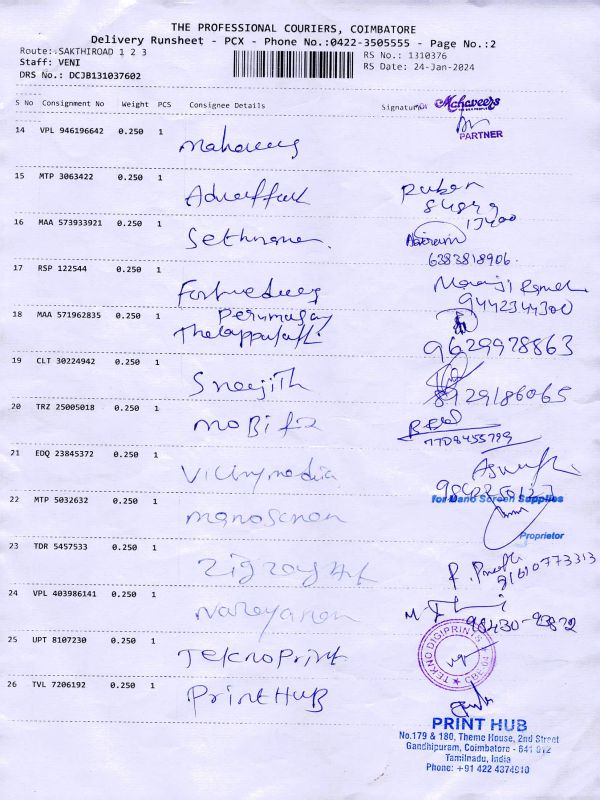 THE PROFESSIONAL COURIERS, COIMBATORE
Delivery Runsheet - PCX - Phone No.:0422-3505555 - Page No.:2
Route: SAKTHIROAD 1 2 3
RS No.: 1310376
Staff: VENI
RS Date: 24-Jan-2024
DRS No.: DCJB131037602
S No Consignment No Weight PCS Consignee Details Signature
Mahaveers
PARTNER
14 VPL 946196642 0.250 1
mahaveers
15 MTP 3063422 0.250 1
Ruben
16 MAA 573933921 0.250 1
6383818906
17 RSP 122544 0.250 1
9442344300
18 MAA 571962835 0.250 1
Perumugay
9629978863
19 CLT 30224942 0.250 1
Sreejith
8929186065
20 TRZ 25005018 0.250 1
mobifz
7708455799
21 EDQ 23845372 0.250 1
22 MTP 5032632 0.250 1
for Nano Screen Supplies
manoscreen
Proprietor
23 TDR 5457533 0.250 1
91610773313
24 VPL 403986141 0.250 1
98430-93872
Narayanan
TEKNO DIGIPRINTS
25 UPT 8107230 0.250 1
TeknoPrint
26 TVL 7206192 0.250 1
PrintHUB
PRINT HUB
No.179 & 180, Theme House, 2nd Street
Gandhipuram, Coimbatore - 641 012
Tamilnadu, India
Phone: +91 422 4374910